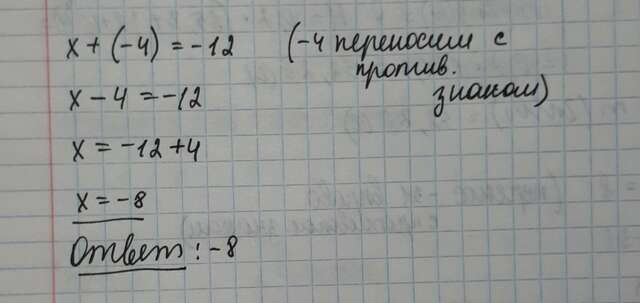 x + (-4) = -12 (-4 переносим с
против.
знаком)
x - 4 = -12
x = -12 + 4
x = -8
Ответ: -8